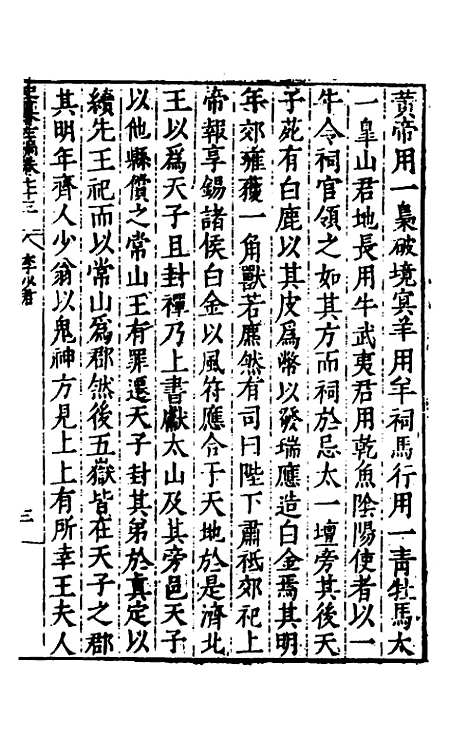 黄帝用一梟破境冥羊用羊祠馬行用一青牡馬太
一皐山君地長用牛武夷君用乾魚陰陽使者以一
牛令祠官領之如其方而祠於忌太一壇旁其後天
子苑有白鹿以其皮爲幣以發瑞應造白金焉其明
年郊雍獲一角獸若麃然有司曰陛下肅祗郊祀上
帝報享錫諸侯白金以風符應合于天地於是濟北
王以爲天子且封禪乃上書獻太山及其旁邑天子
以他縣償之常山王有罪遷天子封其弟於真定以
續先王祀而以常山爲郡然後五嶽皆在天子之郡
其明年齊人少翁以鬼神方見上上有所幸王夫人
卷七十三
李少君
三